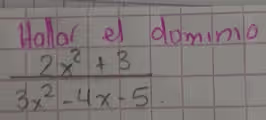 Hallar el dominio
2x² + 3
3x² - 4x - 5.